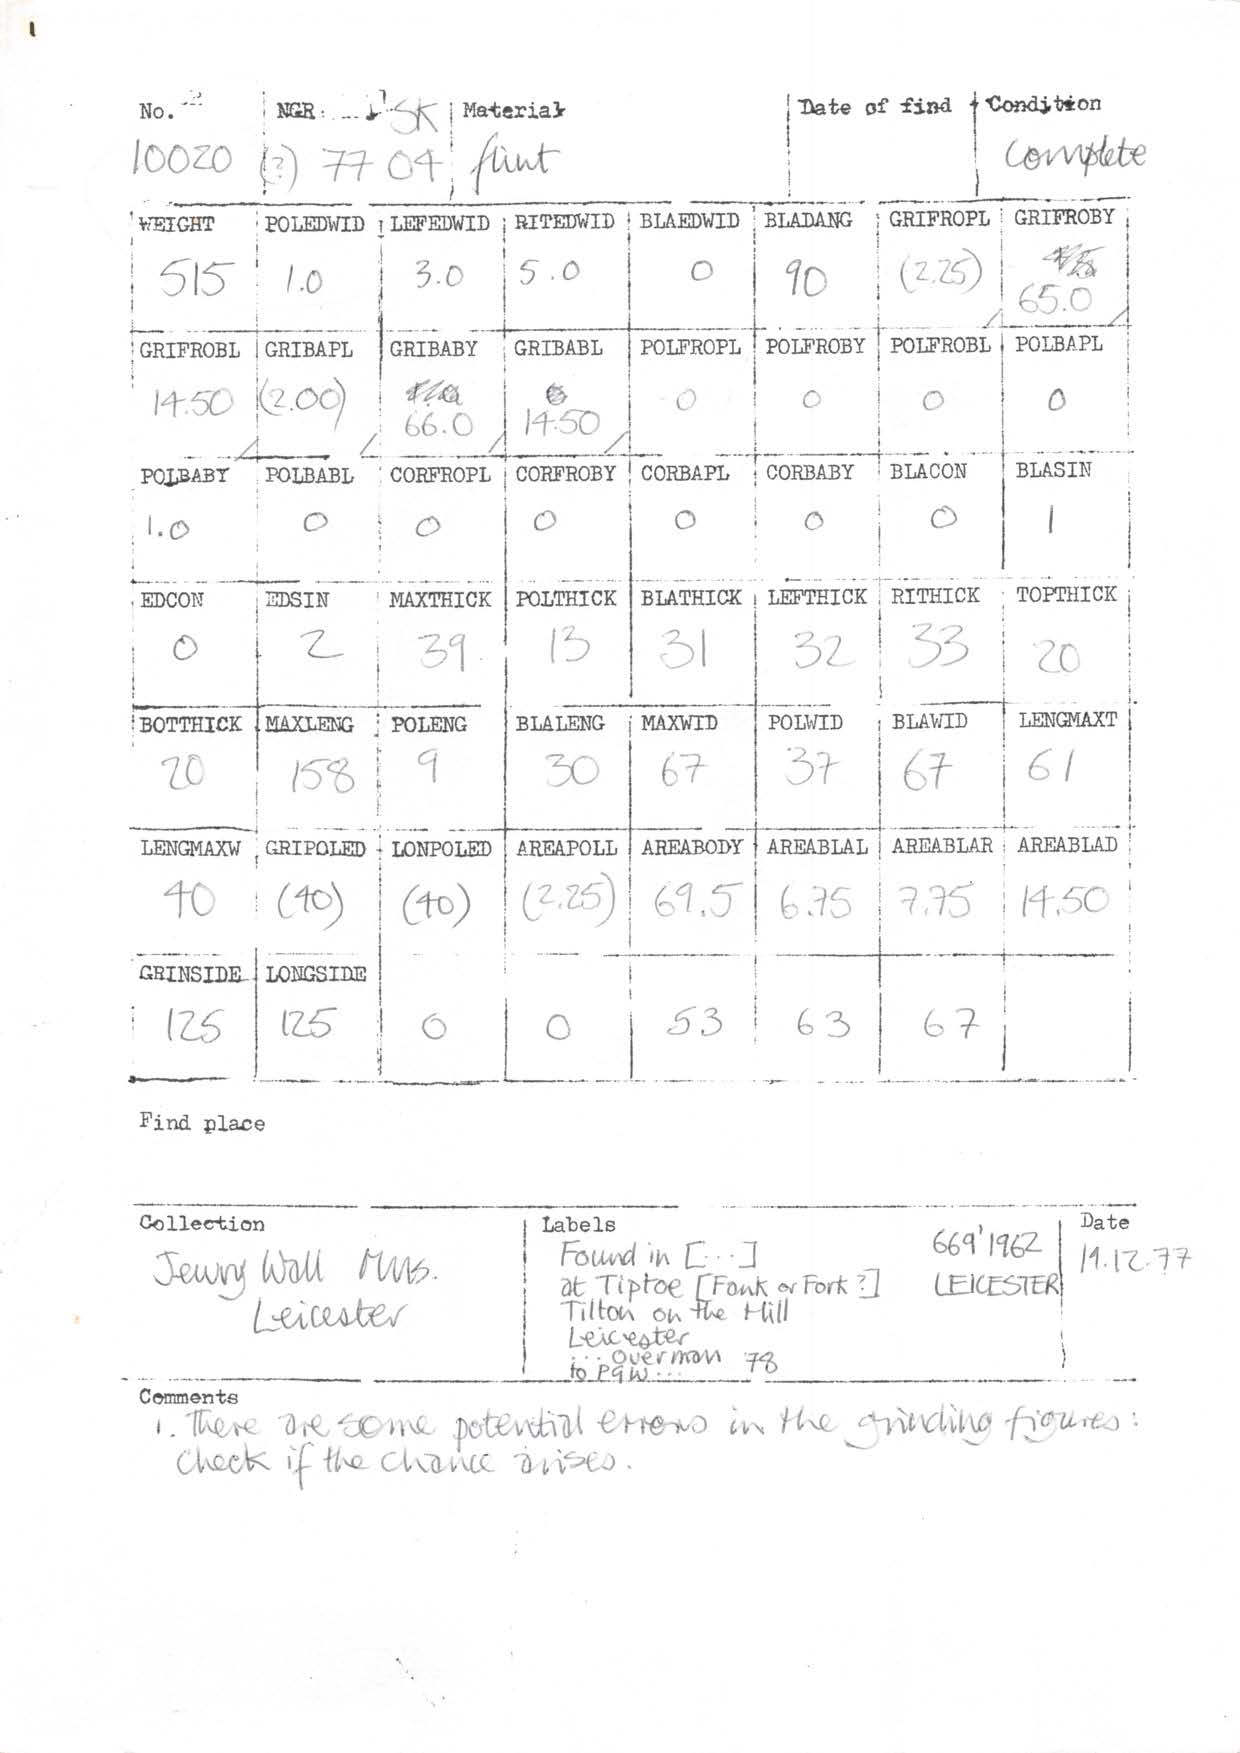 No. NGR: SK Material Date of find Condition
10020 (?) 77 04 flint complete
WEIGHT POLEDWID LEFEDWID RITEDWID BLAEDWID BLADANG GRIFROPL GRIFROBY
515 1.0 3.0 5.0 0 90 (2.25) 65.0
GRIFROBL GRIBAPL GRIBABY GRIBABL POLFROPL POLFROBY POLFROBL POLBAPL
14.50 (2.00) 66.0 14.50 0 0 0 0
POLBABY POLBABL CORFROPL CORFROBY CORBAPL CORBABY BLACON BLASIN
1.0 0 0 0 0 0 0 1
EDCON EDSIN MAXTHICK POLTHICK BLATHICK LEFTHICK RITHICK TOPTHICK
0 2 39 13 31 32 33 20
BOTTHICK MAXLENG POLENG BLALENG MAXWID POLWID BLAWID LENGMAXT
20 158 9 30 67 37 67 61
LENGMAXW GRIPOLED LONPOLED AREAPOLL AREABODY AREABLAL AREABLAR AREABLAD
40 (40) (40) (2.25) 69.5 6.75 7.75 14.50
GRINSIDE LONGSIDE
125 125 0 0 53 63 67
Find place
Collection Labels Date
Jewry Wall Mus.
Leicester
Found in [...]
at Tiptoe [Fonk or Fork?]
Tilton on the Hill
Leicester
... overman 78
to PGW...
669'1962
LEICESTER
19.12.77
Comments
1. There are some potential errors in the grinding figures:
check if the chance arises.